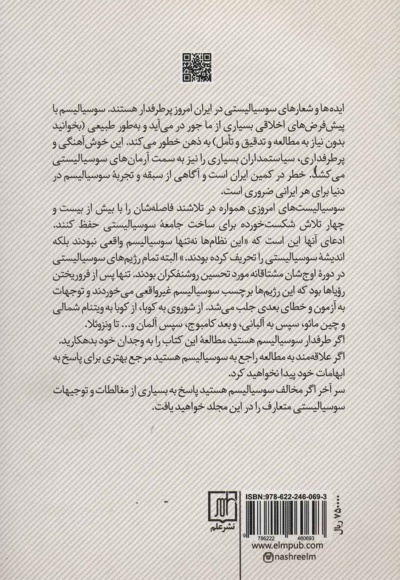 ایده‌ها و شعارهای سوسیالیستی در ایران امروز پرطرفدار هستند. سوسیالیسم با
پیش‌فرض‌های اخلاقی بسیاری از ما جور در می‌آید و به‌طور طبیعی (بخوانید
بدون نیاز به مطالعه و تدقیق و تأمل) به ذهن خطور می‌کند. این خوش‌آهنگی و
پرطرفداری، سیاستمداران بسیاری را نیز به سمت آرمان‌های سوسیالیستی
می‌کشد. خطر در کمین ایران است و آگاهی از سبقه و تجربۀ سوسیالیسم در
دنیا برای هر ایرانی ضروری است.
سوسیالیست‌های امروزی همواره در تلاشند فاصله‌شان را با بیش از بیست و
چهار تلاش شکست‌خورده برای ساخت جامعۀ سوسیالیستی حفظ کنند.
ادعای آنها این است که «این نظام‌ها نه‌تنها سوسیالیسم واقعی نبودند بلکه
اندیشۀ سوسیالیستی را تحریف کرده بودند.» البته تمام رژیم‌های سوسیالیستی
در دورۀ اوج‌شان مشتاقانه مورد تحسین روشنفکران بودند. تنها پس از فروریختن
رؤیاها بود که این رژیم‌ها برچسب سوسیالیسم غیرواقعی می‌خوردند و توجهات
به آزمون و خطای بعدی جلب می‌شد. از شوروی به کوبا، از کوبا به ویتنام شمالی
و چین مائو، سپس به آلبانی، و بعد کامبوج، سپس آلمان و... تا ونزوئلا.
اگر طرفدار سوسیالیسم هستید مطالعه این کتاب را به وجدان خود بدهکارید.
اگر علاقه‌مند به مطالعه راجع به سوسیالیسم هستید مرجع بهتری برای پاسخ به
ابهامات خود پیدا نخواهید کرد.
سر آخر اگر مخالف سوسیالیسم هستید پاسخ به بسیاری از مغالطات و توجیهات
سوسیالیستی متعارف را در این مجلد خواهید یافت.
نشر علم
ISBN:978-622-246-069-3
9 786222 460693
www.elmpub.com
nashreelm
۷۵۰۰۰۰ ریال